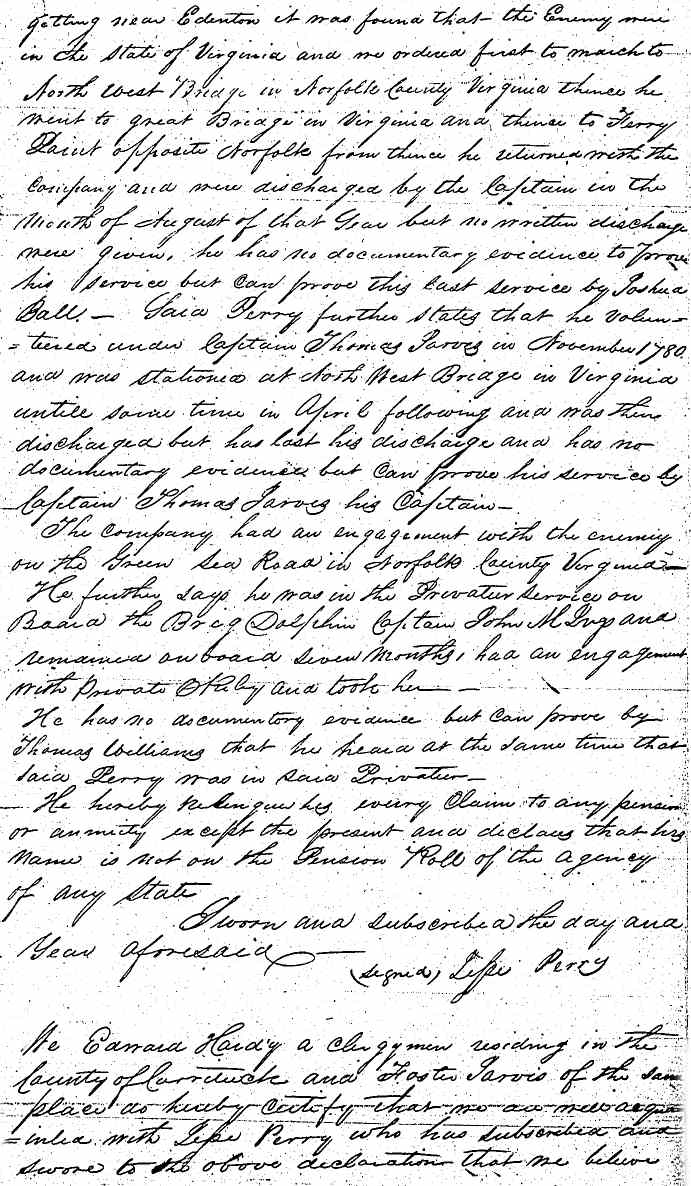 getting near Edenton it was found that the Enemy were
in the State of Virginia and we ordered first to march to
North West Bridge in Norfolk County Virginia thence he
went to great Bridge in Virginia and thence to Ferry
Point opposite Norfolk from thence he returned with the
Company and were discharged by the Captain in the
Month of August of that Year but no written discharge
were given, he has no documentary evidence to prove
his service but can prove this last service by Joshua
Ball. — Said Perry further states that he volun-
= teered under Captain Thomas Jarvis in November 1780
and was stationed at North West Bridge in Virginia
untill some time in April following and was then
discharged but has lost his discharge and has no
documentary evidence but can prove his service by
Captain Thomas Jarvis his Captain —
The company had an engagement with the enemy
on the Green Sea Road in Norfolk County Virginia —
He further says he was in the Privateer Service on
Board the Brig Dolphin Captain John and
remained on board seven Months, had an engagement
with Private and took her — —
He has no documentary evidence but can prove by
Thomas Williams that he heard at the same time that
said Perry was in said Privateer —
— He hereby relinquishes every Claim to any pension
or annuity except the present and declares that his
name is not on the Pension Roll of the agency
of any State
Sworn and subscribed the day and
Year aforesaid —
(signed) Jesse Perry
We Edward Hardy a clergymen residing in the
County of Currituck and Foster Jarvis of the same
place do hereby certify that we are well acqua
= inted with Jesse Perry who has subscribed and
swore to the above declaration that we believe